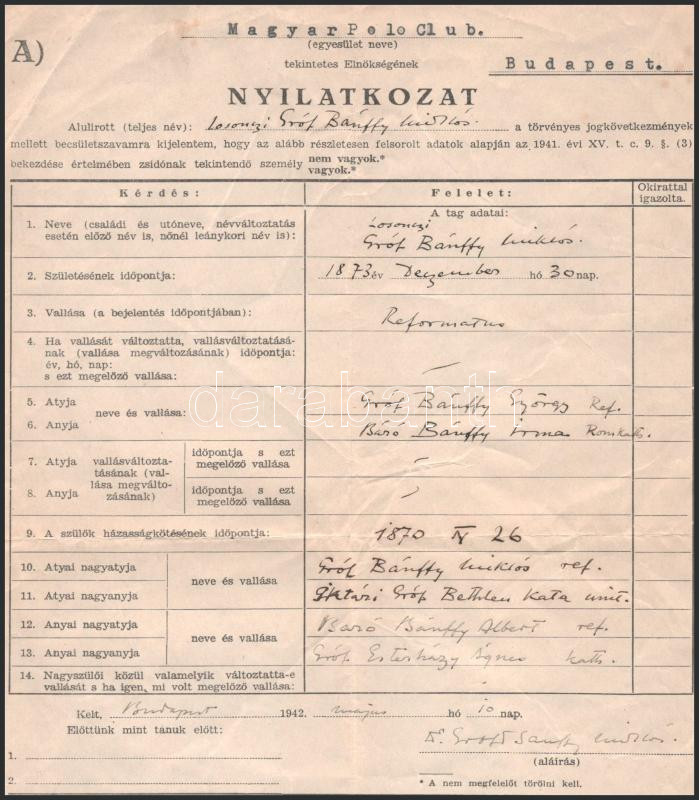 A)
Magyar Polo Club.
(egyesület neve)
tekintetes Elnökségének
Budapest.
NYILATKOZAT
Alulirott (teljes név): Losonczi Gróf Bánffy Miklós. a törvényes jogkövetkezmények
mellett becsületszavamra kijelentem, hogy az alább részletesen felsorolt adatok alapján az 1941. évi XV. t. c. 9. §. (3)
bekezdése értelmében zsidónak tekintendő személy nem vagyok.*
vagyok.*
Kérdés: Felelet: Okirattal igazolta.
A tag adatai:
1. Neve (családi és utóneve, névváltoztatás
esetén előző név is, nőnél leánykori név is):
Losonczi
Gróf Bánffy Miklós.
2. Születésének időpontja: 1873 év Deczember hó 30 nap.
3. Vallása (a bejelentés időpontjában): Reformatus
4. Ha vallását változtatta, vallásváltoztatásá-
nak (vallása megváltozásának) időpontja:
év, hó, nap:
s ezt megelőző vallása:
5. Atyja neve és vallása: Gróf Bánffy György Ref.
6. Anyja Báró Bánffy Irma Romkath.
7. Atyja vallásváltozta-
tásának (val-
lása megválto-
zásának) időpontja s ezt
megelőző vallása
8. Anyja időpontja s ezt
megelőző vallása
9. A szülők házasságkötésének időpontja: 1870 IV 26
10. Atyai nagyatyja neve és vallása Gróf Bánffy Miklós ref.
11. Atyai nagyanyja Iktári Gróf Bethlen Kata unit.
12. Anyai nagyatyja neve és vallása Báró Bánffy Albert ref.
13. Anyai nagyanyja Gróf Esterházy Ágnes kath.
14. Nagyszülői közül valamelyik változtatta-e
vallását s ha igen, mi volt megelőző vallása:
Kelt, Budapest 1942. május hó 10 nap.
Előttünk mint tanuk előtt:
Gróf Bánffy Miklós.
(aláírás)
1.
2.
* A nem megfelelőt törölni kell.
darabanth